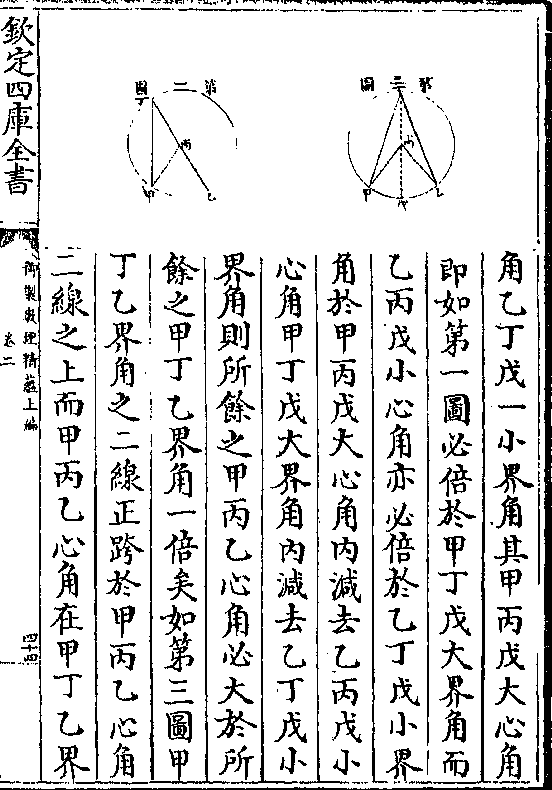 第三圖
丁
丙
甲
戊
乙
第二圖
丁
丙
甲
乙
角乙丁戊一小界角其甲丙戊大心角
即如第一圖必倍於甲丁戊大界角而
乙丙戊小心角亦必倍於乙丁戊小界
角於甲丙戊大心角内減去乙丙戊小
心角甲丁戊大界角内減去乙丁戊小
界角則所餘之甲丙乙心角必大於所
餘之甲丁乙界角一倍矣如第三圖甲
丁乙界角之二線正跨於甲丙乙心角
二線之上而甲丙乙心角在甲丁乙界
欽定四庫全書
御製數理精蘊上編
卷二
四十四